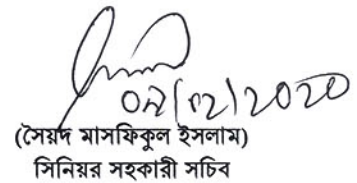 ০৯/০২/২০২০
(সৈয়দ মাসফিকুল ইসলাম)
সিনিয়র সহকারী সচিব